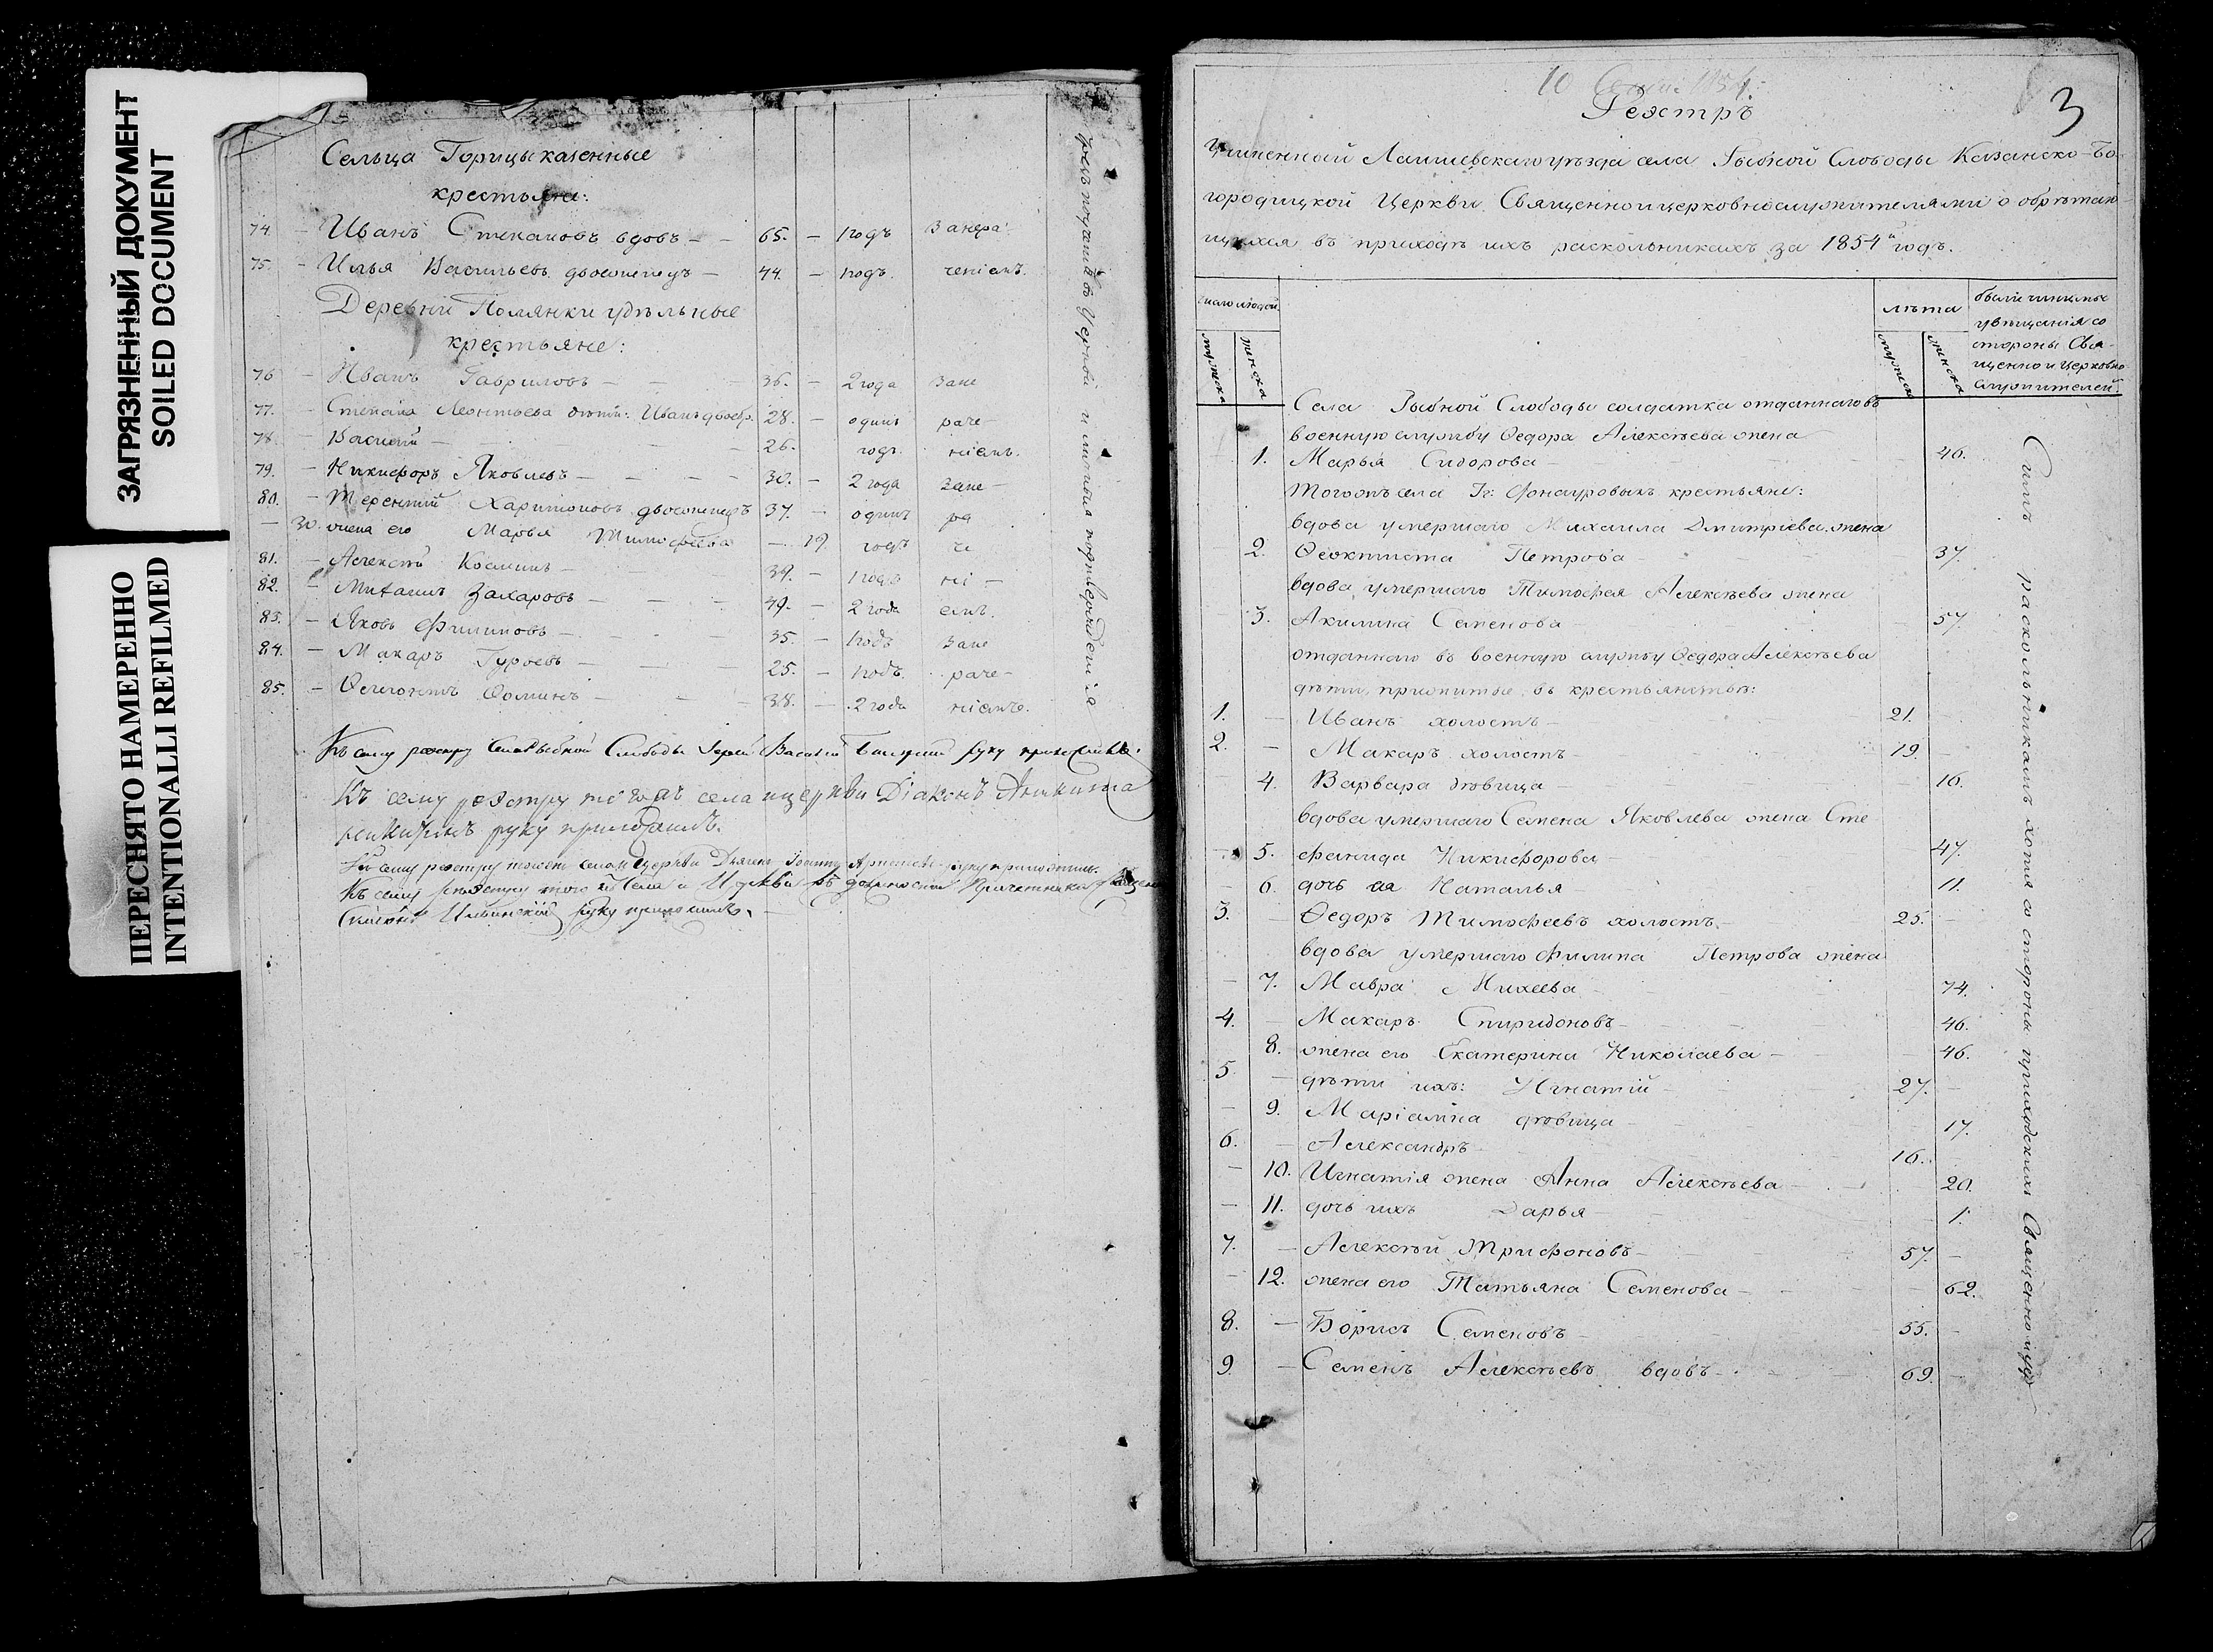 ЗАГРЯЗНЕННЫЙ ДОКУМЕНТ
SOILED DOCUMENT
ПЕРЕСНЯТО НАМЕРЕННО
INTENTIONALLI REFILMED
Сельца Горицы казенные
крестьяне:
74. – Иванъ Степановъ вдовъ – – 65. – 1 годъ За нера
75. – Илья Васильевъ двоеженецъ – 44. – 1 годъ. ченіемъ.
Деревни Полянки удѣльные
крестьяне:
76 – Иванъ Гавриловъ – – – 36. – 2 года Зане
77. – Степана Леонтьева дѣти: Иванъ двоебр. 28. – одинъ раче–
78. – Василій – – – 26. годъ. ніемъ.
79. – Никифоръ Яковлевъ – – – – 30. – 2 года Зане –
80. – Терентій Харитоновъ двоеженецъ 37. – одинъ ра
– 30. жена его Марья Тимофеева – 19. годъ че
81. – Алексѣй Косминъ – – – 39. – 1 годъ ні –
82. – Михаилъ Захаровъ – – – 49. – 2 года емъ.
83. – Яковъ Филиповъ – – – 35. – 1 годъ Зане
84. – Макаръ Гурьевъ – – – 25. – 1 годъ. раче–
85. – Ѳеоктистъ Ѳоминъ – – – 38. – 2 года ніемъ.
Къ сему реэстру села Рыбной Слободы Іерей Василій руку приложилъ.
Къ сему реэстру тогожъ села и церкви Діаконъ
руку приложилъ.
Къ сему реэстру тогожъ села и Церкви Дьячекъ руку приложилъ.
Къ сему реэстру того же Села и Церкви въ должности Причетника
Ильинскій руку приложилъ.
3
Реэстръ
Учиненный Лаишевскаго уѣзда села Рыбной Слободы Казанско-Бо-
городицкой Церкви Священно и церковнослужителями о обрѣтаю-
щихся въ приходѣ ихъ раскольникахъ за 1854й годъ.
число людей
мужска
женска
лѣта
мужска
женска
были чинимы
увѣщанія со
стороны Свя-
щенно и Церковно
служителей.
Села Рыбной Слободы солдатка отданнаго въ
военную службу Ѳедора Алексѣева жена
1. Марья Сидорова – 40.
Тогожъ села Гг: крестьяне:
вдова умершаго Михаила Дмитріева жена
2. Ѳеоктиста Петрова – 37.
вдова умершаго Тимофея Алексѣева жена
3. Акилина Семенова – 57.
отданнаго въ военную службу Ѳедора Алексѣева
дѣти, прижитые въ крестьянствѣ:
1. – Иванъ холостъ – 21.
2. – Макаръ холостъ – 19. –
4. Варвара дѣвица – 16.
вдова умершаго Семена Яковлева жена Сте
– 5. фанида Никифорова – 47.
– 6. дочь ея Наталья 11.
3. – Ѳедоръ Тимофеевъ холостъ – 25. –
вдова умершаго Филипа Петрова жена
– 7. Мавра Михеева – 74.
4. – Макаръ Спиридоновъ – 46.
8. жена его Екатерина Николаева – 46.
5. – дѣти ихъ: Игнатій – 27. –
– 9. Маріамна дѣвица – 17.
6. – Александръ – 16. –
– 10. Игнатія жена Анна Алексѣева – 20.
– 11. дочь ихъ Дарья – 1.
7. – Алексѣй Трифоновъ – 57. –
– 12. жена его Татьяна Семенова – 62.
8. – Борисъ Семеновъ – 55. –
9. – Семенъ Алексѣевъ вдовъ – 69. –
Симъ раскольникамъ хотя со стороны приходскихъ Священно